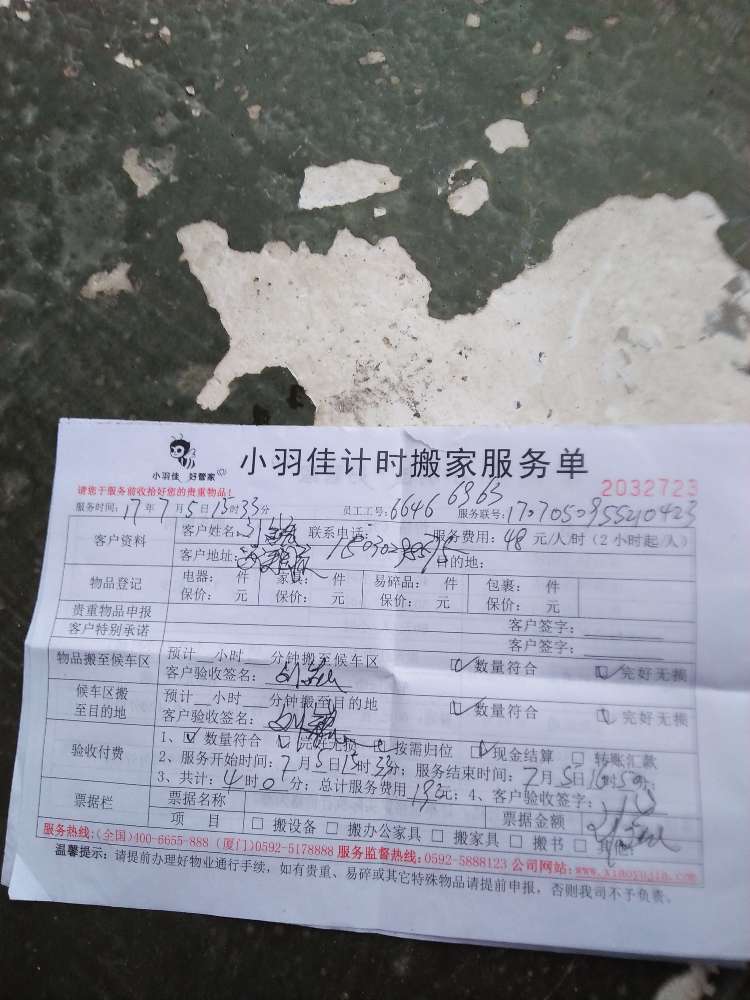 小羽佳 好管家
小羽佳计时搬家服务单
请您于服务前收拾好您的贵重物品!
2032723
服务时间: 17年7月5日13时33分 员工工号: 6646 6965 服务联号: 1707050955210423
客户资料 客户姓名: 联系电话: 服务费用: 48 元/人/时 (2小时起/人)
客户地址: 目的地:
物品登记 电器: 件 家具: 件 易碎品: 件 包裹: 件
保价: 元 保价: 元 保价: 元 保价: 元
贵重物品申报 客户签字:
客户特别承诺 客户签字:
物品搬至候车区 预计__小时__分钟搬至候车区 ☑数量符合 ☑完好无损
客户验收签名:
候车区搬至目的地 预计__小时__分钟搬至目的地 ☑数量符合 ☑完好无损
客户验收签名:
验收付费 1、☑数量符合 ☑完好无损 ☑按需归位 ☑现金结算 □转账汇款
2、服务开始时间: 7月5日13时33分; 服务结束时间: 7月5日16时50分;
3、共计: 4时0分; 总计服务费用192元; 4、客户验收签字:
票据栏 票据名称 票据金额
项目 □搬设备 □搬办公家具 □搬家具 □搬书 □其他:
服务热线:(全国)400-6655-888 (厦门)0592-5178888 服务监督热线:0592-5888123 公司网站:www.xiaoyujia.com
温馨提示: 请提前办理好物业通行手续, 如有贵重、易碎或其它特殊物品请提前申报, 否则我司不予负责。